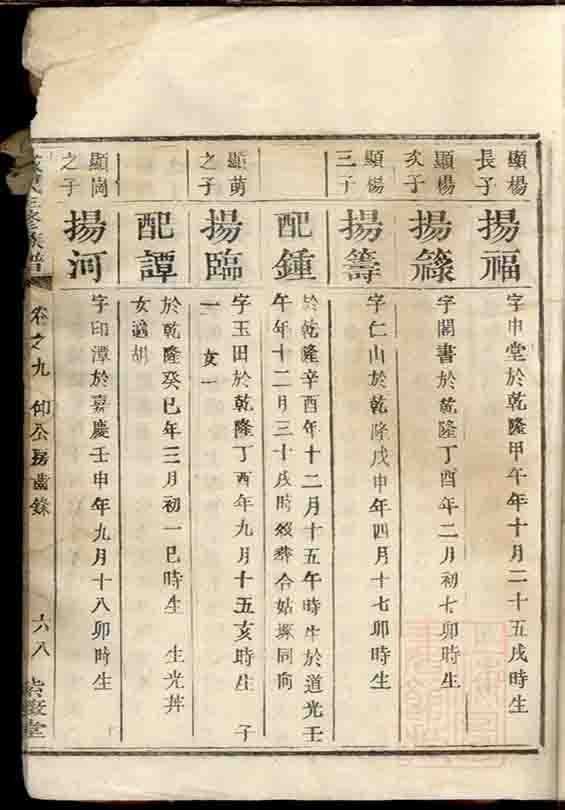 顯楊
長子
揚福
字申堂於乾隆甲午年十月二十五戌時生
顯楊
次子
揚籙
字閣書於乾隆丁酉年二月初七卯時生
顯楊
三子
揚籌
字仁山於乾隆戊申年四月十七卯時生
配鍾
於乾隆辛酉年十二月十五午時生於道光壬
午年十二月三十戌時歿葬合姑塚同向
顯萌
之子
揚臨
字玉田於乾隆丁酉年九月十五亥時生 子
一 女一
配譚
於乾隆癸巳年三月初一巳時生 生光丼
女適胡
顯崗
之子
揚河
字印潭於嘉慶壬申年九月十八卯時生
修族譜
卷之九 仰公房齒錄
六八
紫駿堂